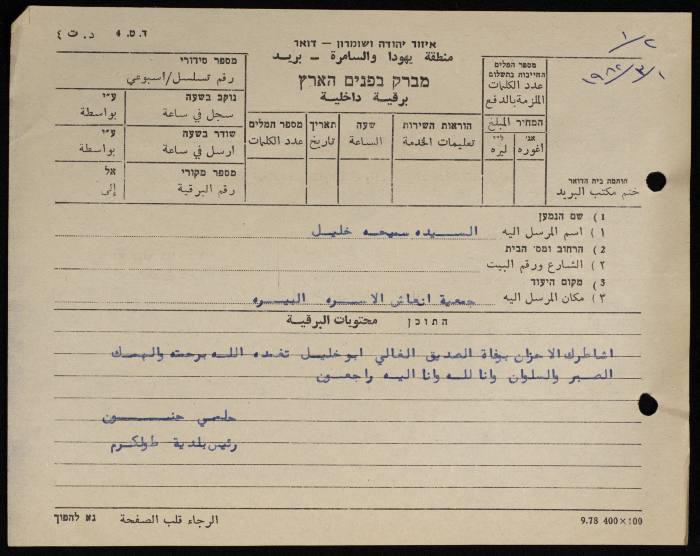 ד. ט. 4 د. ت ٤
١/٢
١٩٨٢/٣/١
איזור יהודה ושומרון - דואר
منطقة يهودا والسامرة - بريد
מברק בפנים הארץ
برقية داخلية
מספר סידורי
رقم تسلسل/اسبوعي
נוקב בשעה ע״י
سجل في ساعة بواسطة
שודר בשעה ע״י
ارسل في ساعة بواسطة
מספר מקורי אל
رقم البرقية إلى
מספר המלים
عدد الكلمات
תאריך
تاريخ
שעה
الساعة
הוראות השירות
تعليمات الخدمة
מספר המלים
החייבות בתשלום
عدد الكلمات
الملزمة بالدفع
המחיר المبلغ
אג׳ ל״י
أغوره ليره
חותמת בית הדואר
ختم مكتب البريد
1 ) שם הנמען
١ ) اسم المرسل اليه السيده سميحه خليل
2 ) הרחוב ומס׳ הבית
٢ ) الشارع ورقم البيت
3 ) מקום היעוד
٣ ) مكان المرسل اليه جمعية انعاش الاسره البيره
התוכן محتويات البرقية
اشاطرك الاحزان بوفاة الصديق الغالي ابو خليل تغمده الله برحمته والهمك
الصبر والسلوان وانا لله وانا اليه راجعون
حلمي حنون
رئيس بلدية طولكرم
נא להפוך الرجاء قلب الصفحة
9.78 400×100